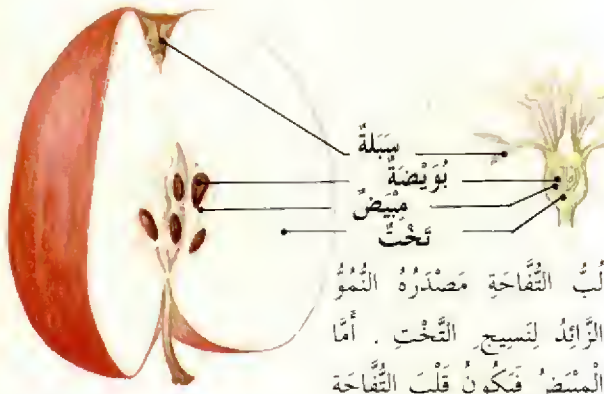 سَبَلةٌ
بُوَيْضَةٌ
مِبْيَضٌ
تَخْتٌ
لُبُّ التُّفَّاحَةِ مَصْدَرُهُ النُّمُوُّ
الزَّائِدُ لِنَسِيجِ التَّخْتِ . أَمَّا
الْمِبْيَضُ فَيَكُونُ قَلْبَ التُّفَّاحَةِ